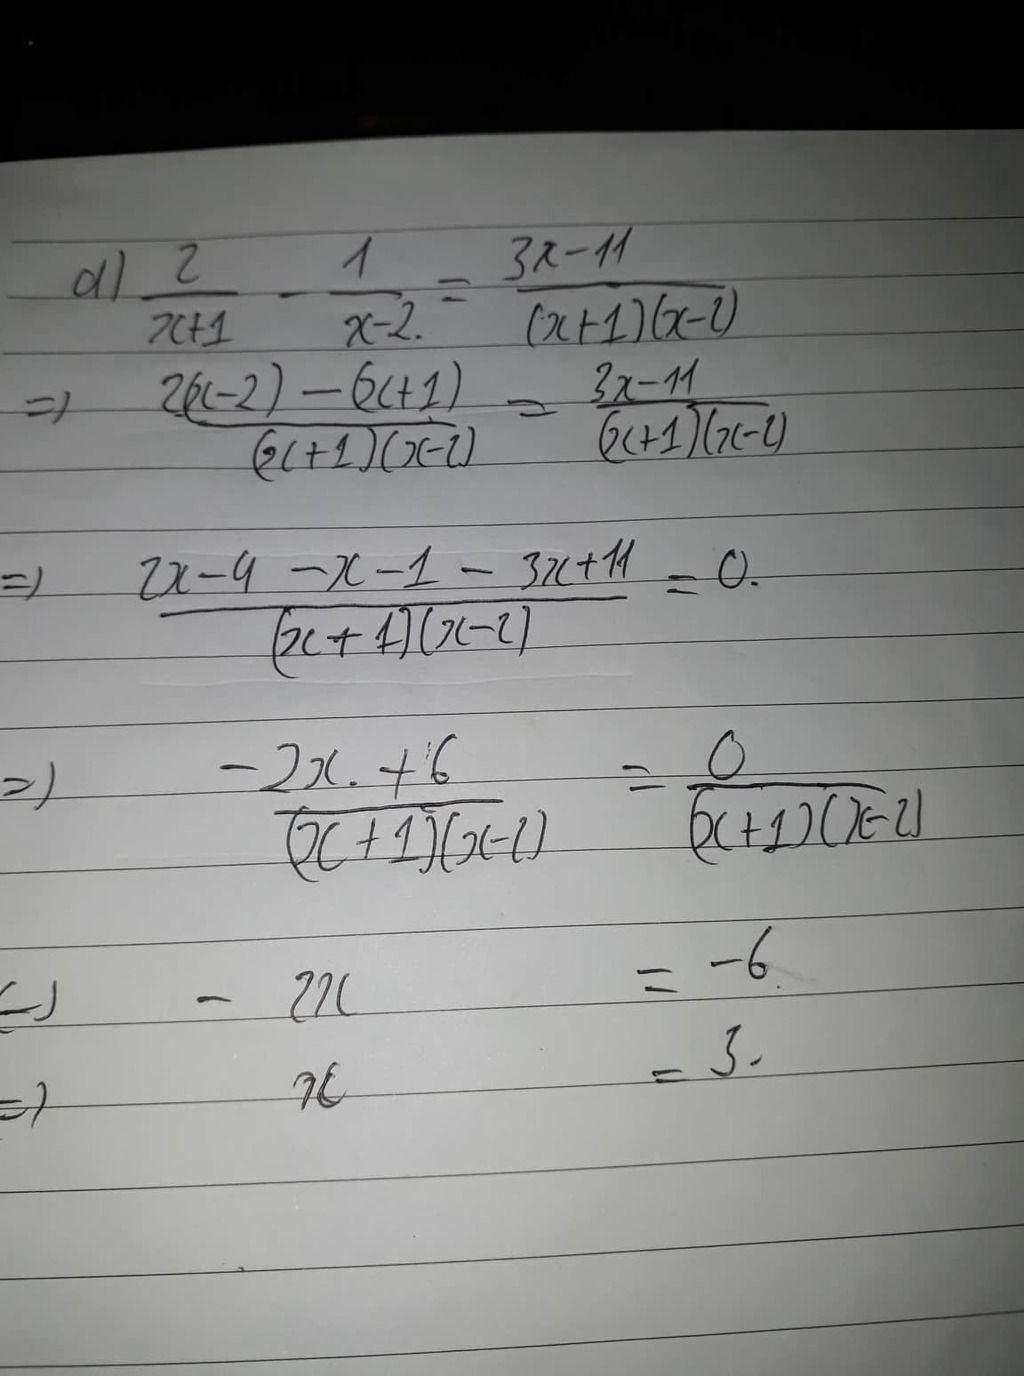 d) 2/(x+1) - 1/(x-2) = (3x-11)/((x+1)(x-2))
=> (2(x-2) - (x+1))/((x+1)(x-2)) = (3x-11)/((x+1)(x-2))
=> (2x-4 -x-1 - 3x+11)/((x+1)(x-2)) = 0.
=> (-2x. +6)/((x+1)(x-2)) = 0/((x+1)(x-2))
(-) - 2x = -6.
=> x = 3.